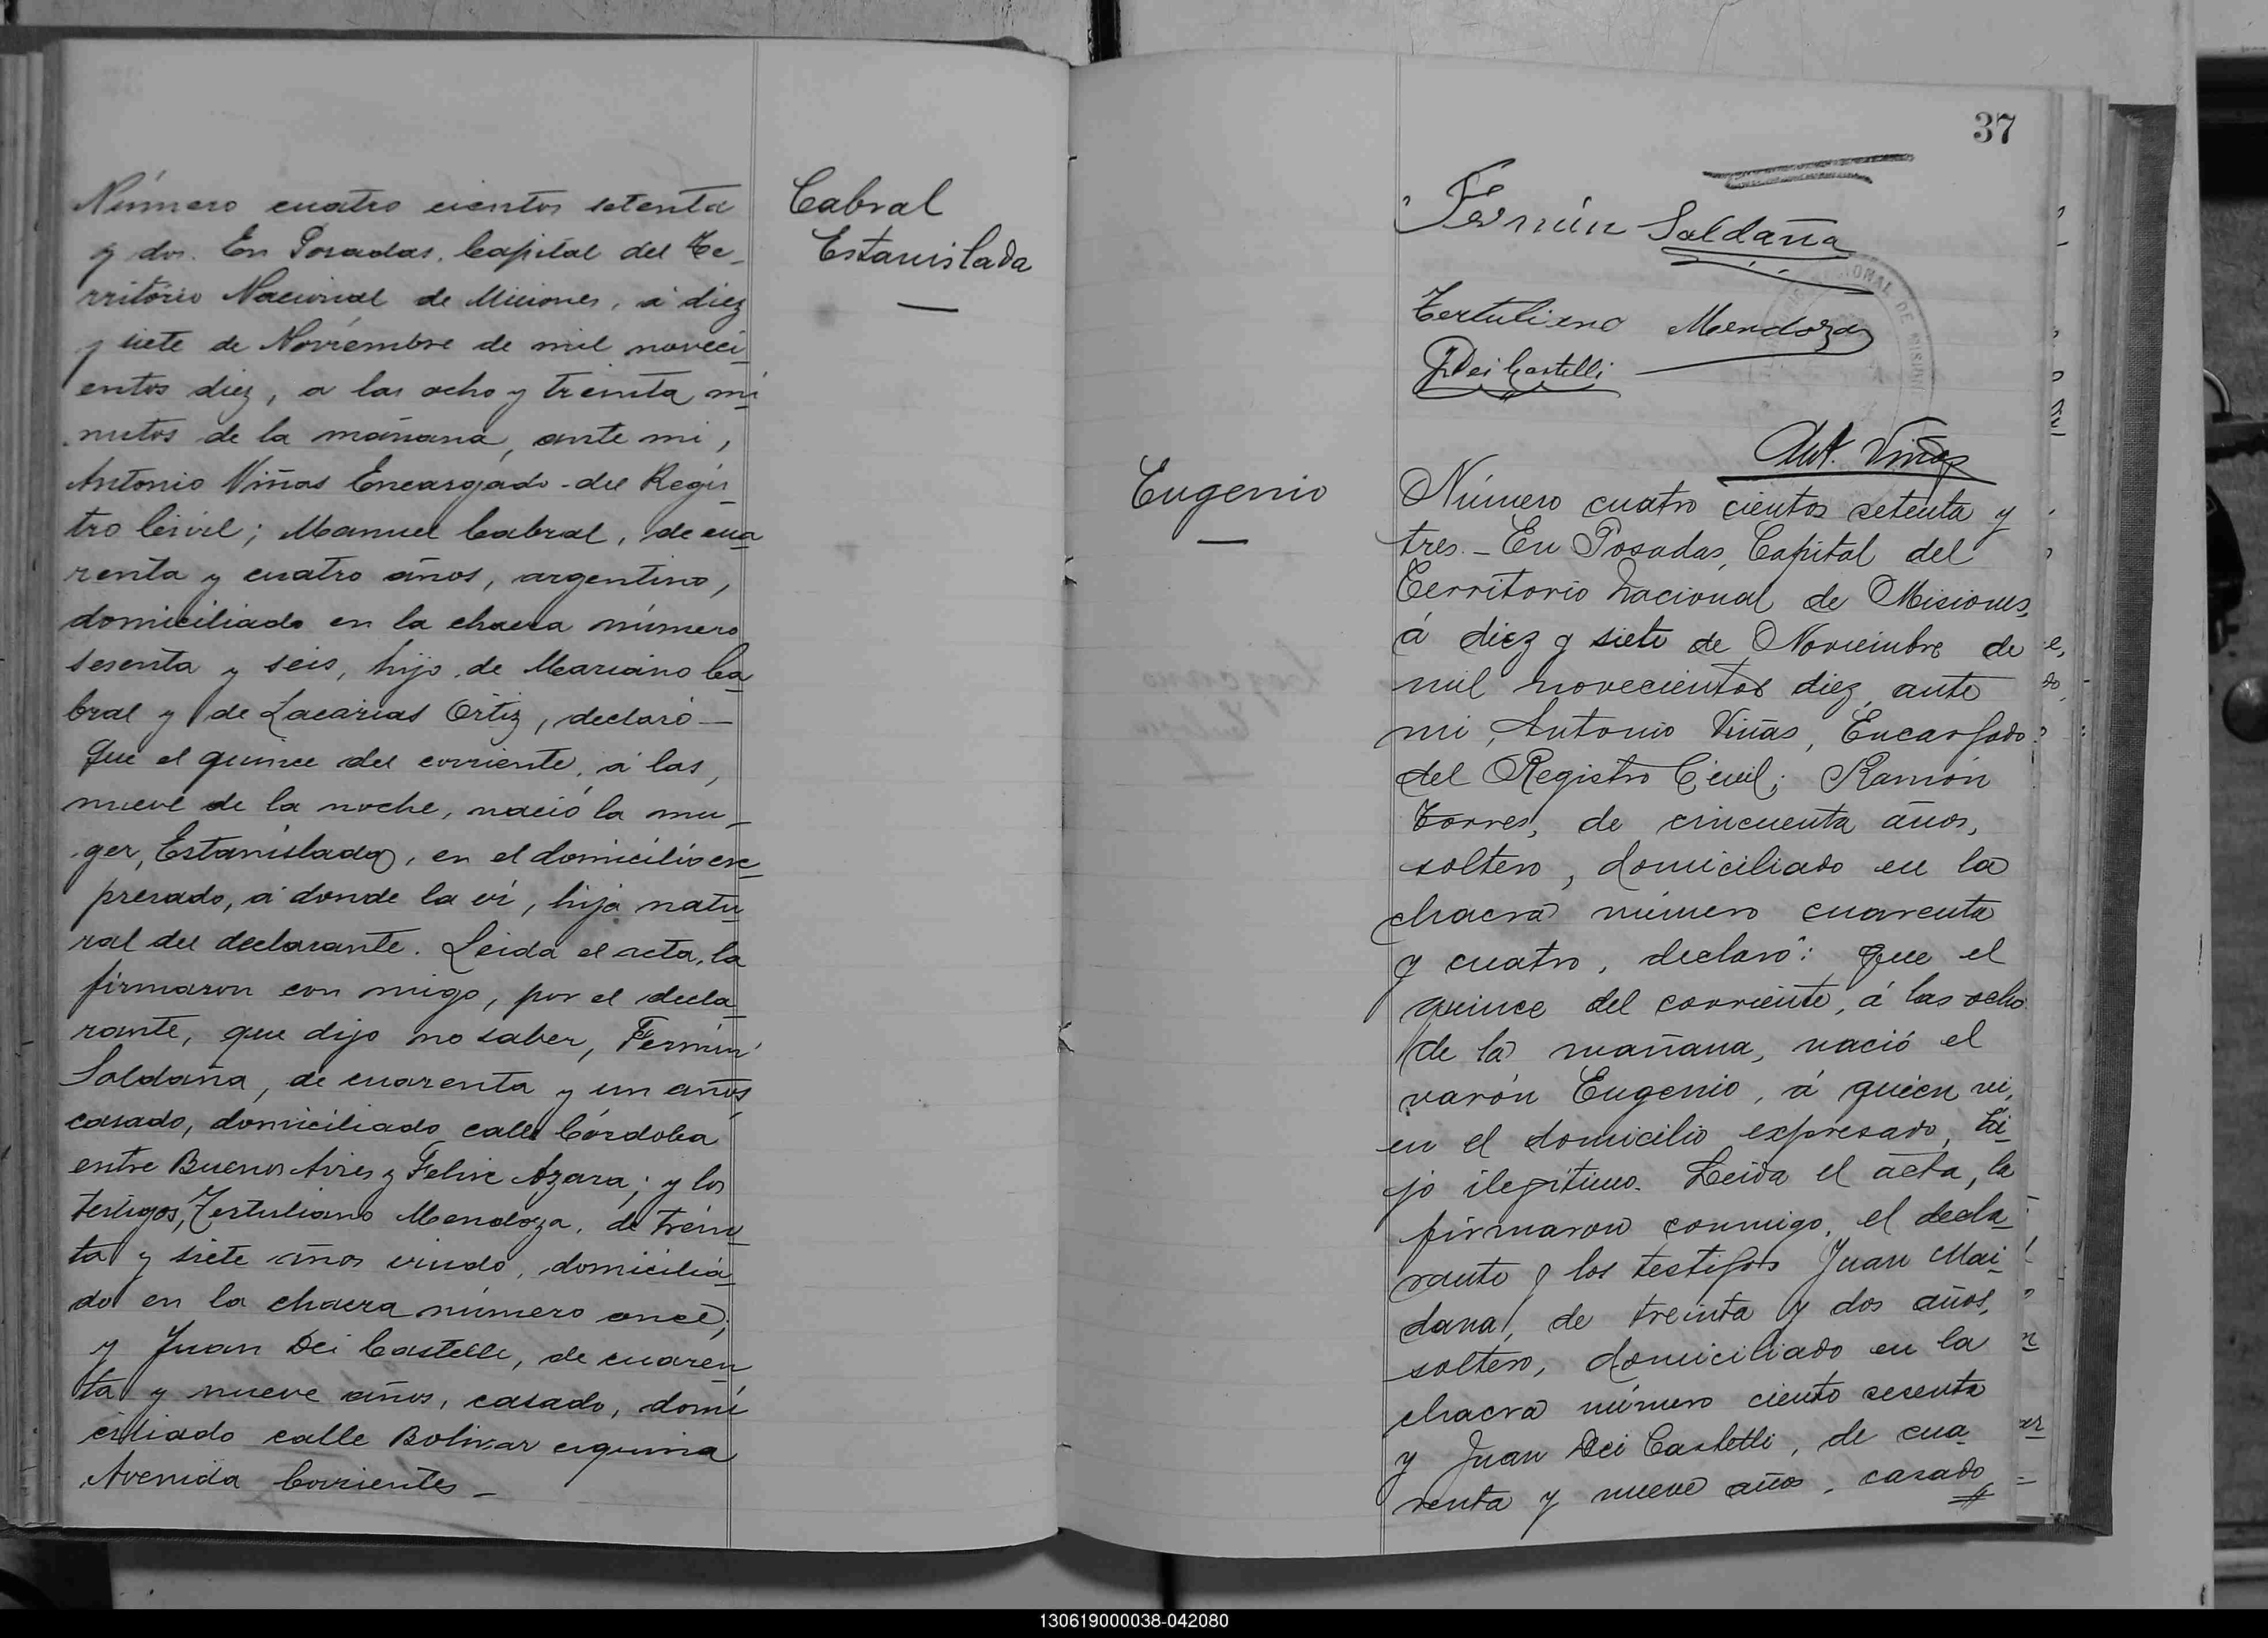 Número cuatro cientos setenta
y dos. En Posadas, Capital del Te-
rritorio Nacional de Misiones, á diez
y siete de Noviembre de mil noveci-
entos diez, a las ocho y treinta mi-
nutos de la mañana, ante mi,
Antonio Viñas Encargado del Regis-
tro Civil; Manuel Cabral, de cua-
renta y cuatro años, argentino,
domiciliado en la chacra número
sesenta y seis, hijo de Mariano Ca-
bral y de Lacarias Ortiz, declaró—
Que el quince del corriente, á las,
nueve de la noche, nació la mu-
ger, Estanislada, en el domicilio ex-
presado, á donde la ví, hija natu-
ral del declarante. Leida el acta, la
firmaron con migo, por el decla-
rante, que dijo no saber, Fermín
Saldaña, de cuarenta y un años,
casado, domiciliado calle Córdoba
entre Buenos Aires y Felix Azara; y los
testigos, Tertuliano Mendoza, de trein-
ta y siete años viudo, domicilia-
do en la chacra número once;
y Juan Dei Castelli, de cuaren-
ta y nueve años, casado, domi-
ciliado calle Bolivar esquina
Avenida Corrientes—
Cabral
Estanislada
37
Fermín Saldaña
Tertuliano Mendoza
J Dei Castelli
Ant. Viñas
Eugenio
Número cuatro cientos setenta y
tres.— En Posadas, Capital del
Territorio Nacional de Misiones,
á diez y siete de Noviembre de
mil novecientos diez, ante
mi, Antonio Viñas, Encargado
del Registro Civil; Ramón
Torres, de cincuenta años,
soltero, domiciliado en la
chacra número cuarenta
y cuatro, declaró: Que el
quince del corriente, á las ocho
de la mañana, nació el
varón Eugenio, á quien ví,
en el domicilio expresado, hi-
jo ilegítimo. Leida el acta, la
firmaron conmigo, el decla-
rante y los testigos Juan Mai-
dana, de treinta y dos años,
soltero, domiciliado en la
chacra número ciento sesenta
y Juan Dei Castelli, de cua-
renta y nueve años, casado
130619000038-042080